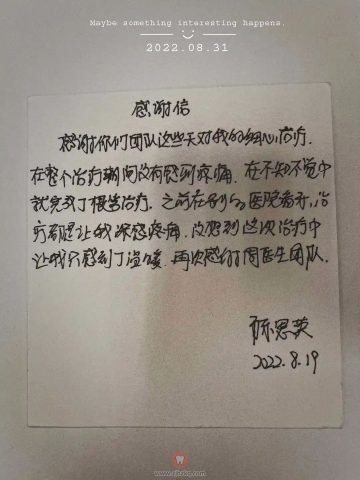 Maybe something interesting happens.
2022.08.31
感谢信
感谢你们团队这些天对我的细心治疗.
在整个治疗期间没有感到疼痛. 在不知不觉中
就完成了根管治疗. 之前在别的医院看牙, 治
疗都是让我深感疼痛. 没想到这次治疗中
让我只感到了温暖. 再次感谢周医生团队.
陈思英
2022.8.19